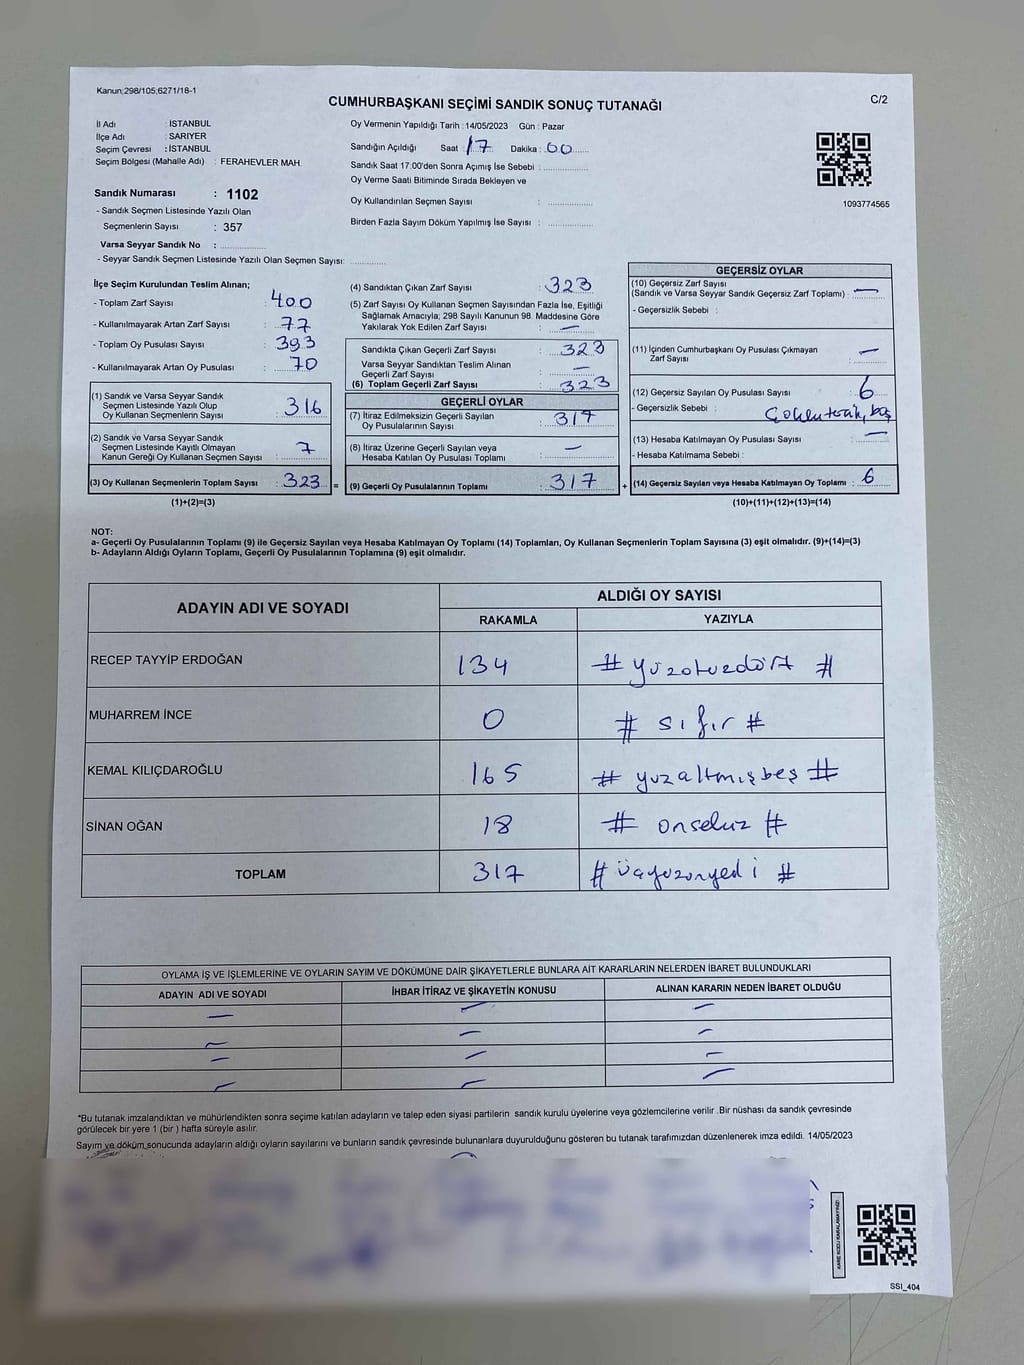 Kanun;298/105;6271/18-1
CUMHURBAŞKANI SEÇİMİ SANDIK SONUÇ TUTANAĞI
C/2
İl Adı : İSTANBUL
İlçe Adı : SARIYER
Seçim Çevresi : İSTANBUL
Seçim Bölgesi (Mahalle Adı) : FERAHEVLER MAH.
Sandık Numarası : 1102
- Sandık Seçmen Listesinde Yazılı Olan
Seçmenlerin Sayısı : 357
Varsa Seyyar Sandık No :
- Seyyar Sandık Seçmen Listesinde Yazılı Olan Seçmen Sayısı:
Oy Vermenin Yapıldığı Tarih :14/05/2023 Gün : Pazar
Sandığın Açıldığı Saat : 17 Dakika : 00
Sandık Saat 17:00'den Sonra Açımış İse Sebebi :
Oy Verme Saati Bitiminde Sırada Bekleyen ve
Oy Kullandırılan Seçmen Sayısı :
Birden Fazla Sayım Döküm Yapılmış İse Sayısı :
1093774565
İlçe Seçim Kurulundan Teslim Alınan;
- Toplam Zarf Sayısı : 400
- Kullanılmayarak Artan Zarf Sayısı : 77
- Toplam Oy Pusulası Sayısı : 393
- Kullanılmayarak Artan Oy Pusulası : 70
(1) Sandık ve Varsa Seyyar Sandık
Seçmen Listesinde Yazılı Olup
Oy Kullanan Seçmenlerin Sayısı : 316
(2) Sandık ve Varsa Seyyar Sandık
Seçmen Listesinde Kayıtlı Olmayan
Kanun Gereği Oy Kullanan Seçmen Sayısı : 7
(3) Oy Kullanan Seçmenlerin Toplam Sayısı : 323 =
(1)+(2)=(3)
(4) Sandıktan Çıkan Zarf Sayısı : 323
(5) Zarf Sayısı Oy Kullanan Seçmen Sayısından Fazla İse, Eşitliği
Sağlamak Amacıyla; 298 Sayılı Kanunun 98. Maddesine Göre
Yakılarak Yok Edilen Zarf Sayısı : —
Sandıkta Çıkan Geçerli Zarf Sayısı : 323
Varsa Seyyar Sandıktan Teslim Alınan
Geçerli Zarf Sayısı : —
(6) Toplam Geçerli Zarf Sayısı : 323
GEÇERLİ OYLAR
(7) İtiraz Edilmeksizin Geçerli Sayılan
Oy Pusulalarının Sayısı : 317
(8) İtiraz Üzerine Geçerli Sayılan veya
Hesaba Katılan Oy Pusulası Toplamı : —
(9) Geçerli Oy Pusulalarının Toplamı : 317 +
GEÇERSİZ OYLAR
(10) Geçersiz Zarf Sayısı
(Sandık ve Varsa Seyyar Sandık Geçersiz Zarf Toplamı) : —
- Geçersizlik Sebebi :
(11) İçinden Cumhurbaşkanı Oy Pusulası Çıkmayan
Zarf Sayısı : —
(12) Geçersiz Sayılan Oy Pusulası Sayısı : 6
- Geçersizlik Sebebi : boş
(13) Hesaba Katılmayan Oy Pusulası Sayısı : —
- Hesaba Katılmama Sebebi :
(14) Geçersiz Sayılan veya Hesaba Katılmayan Oy Toplamı : 6
(10)+(11)+(12)+(13)=(14)
NOT:
a- Geçerli Oy Pusulalarının Toplamı (9) ile Geçersiz Sayılan veya Hesaba Katılmayan Oy Toplamı (14) Toplamları, Oy Kullanan Seçmenlerin Toplam Sayısına (3) eşit olmalıdır. (9)+(14)=(3)
b- Adayların Aldığı Oyların Toplamı, Geçerli Oy Pusulalarının Toplamına (9) eşit olmalıdır.
ADAYIN ADI VE SOYADI
ALDIĞI OY SAYISI
RAKAMLA YAZIYLA
RECEP TAYYİP ERDOĞAN 134 # yüzotuzdört #
MUHARREM İNCE 0 # sıfır #
KEMAL KILIÇDAROĞLU 165 # yuzaltmışbeş #
SİNAN OĞAN 18 # onsekiz #
TOPLAM 317 # üçyüzonyedi #
OYLAMA İŞ VE İŞLEMLERİNE VE OYLARIN SAYIM VE DÖKÜMÜNE DAİR ŞİKAYETLERLE BUNLARA AİT KARARLARIN NELERDEN İBARET BULUNDUKLARI
ADAYIN ADI VE SOYADI İHBAR İTİRAZ VE ŞİKAYETİN KONUSU ALINAN KARARIN NEDEN İBARET OLDUĞU
— — —
— — —
— — —
— — —
*Bu tutanak imzalandıktan ve mühürlendikten sonra seçime katılan adayların ve talep eden siyasi partilerin sandık kurulu üyelerine veya gözlemcilerine verilir .Bir nüshası da sandık çevresinde
görülecek bir yere 1 (bir ) hafta süreyle asılır.
Sayım ve döküm sonucunda adayların aldığı oyların sayılarını ve bunların sandık çevresinde bulunanlara duyurulduğunu gösteren bu tutanak tarafımızdan düzenlenerek imza edildi. 14/05/2023
KARE KODU KARALAMAYINIZ!
SSI_404